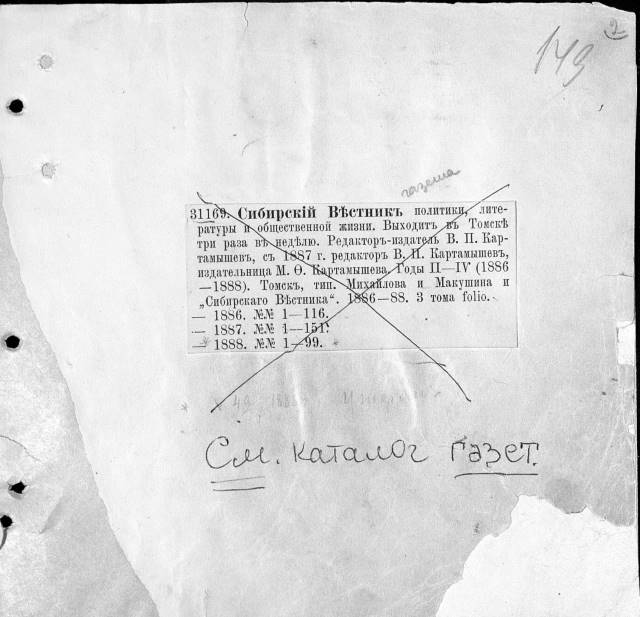 2
149
газета
31169. Сибирскій Вѣстникъ политики, лите-
ратуры и общественной жизни. Выходитъ въ Томскѣ
три раза въ недѣлю. Редакторъ-издатель В. П. Кар-
тамышевъ, съ 1887 г. редакторъ В. П. Картамышевъ,
издательница М. Ѳ. Картамышева. Годы II—IV (1886
—1888). Томскъ, тип. Михайлова и Макушина и
„Сибирскаго Вѣстника“. 1886—88. 3 тома folio.
— 1886. №№ 1—116.
— 1887. №№ 1—151.
— 1888. №№ 1—99.
См. каталог газет.